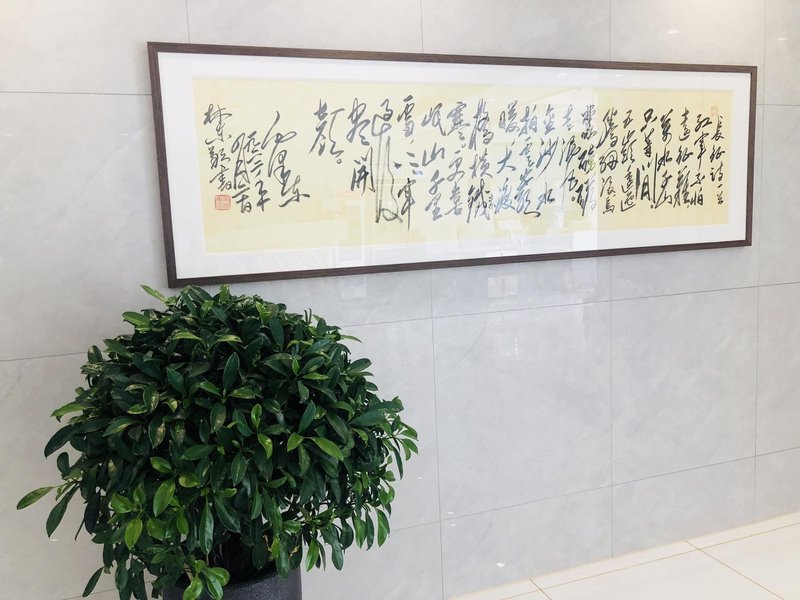 长征诗一首
红军不怕
远征难
万水千山
只等闲
五岭逶迤
腾细浪乌
蒙磅礴
走泥丸
金沙水
拍云崖
暖大渡
桥横铁
索寒更喜
岷山千里
雪三军
过后
尽开
颜。
毛泽东
一九六二年
四月廿日